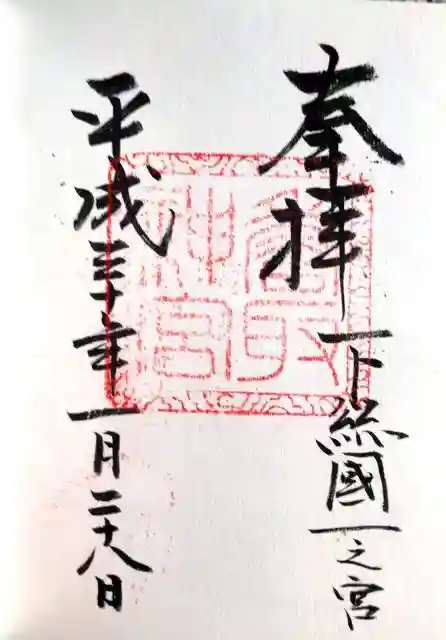 奉拝 下総國一之宮
香取
神宮
平成三十年一月二十八日